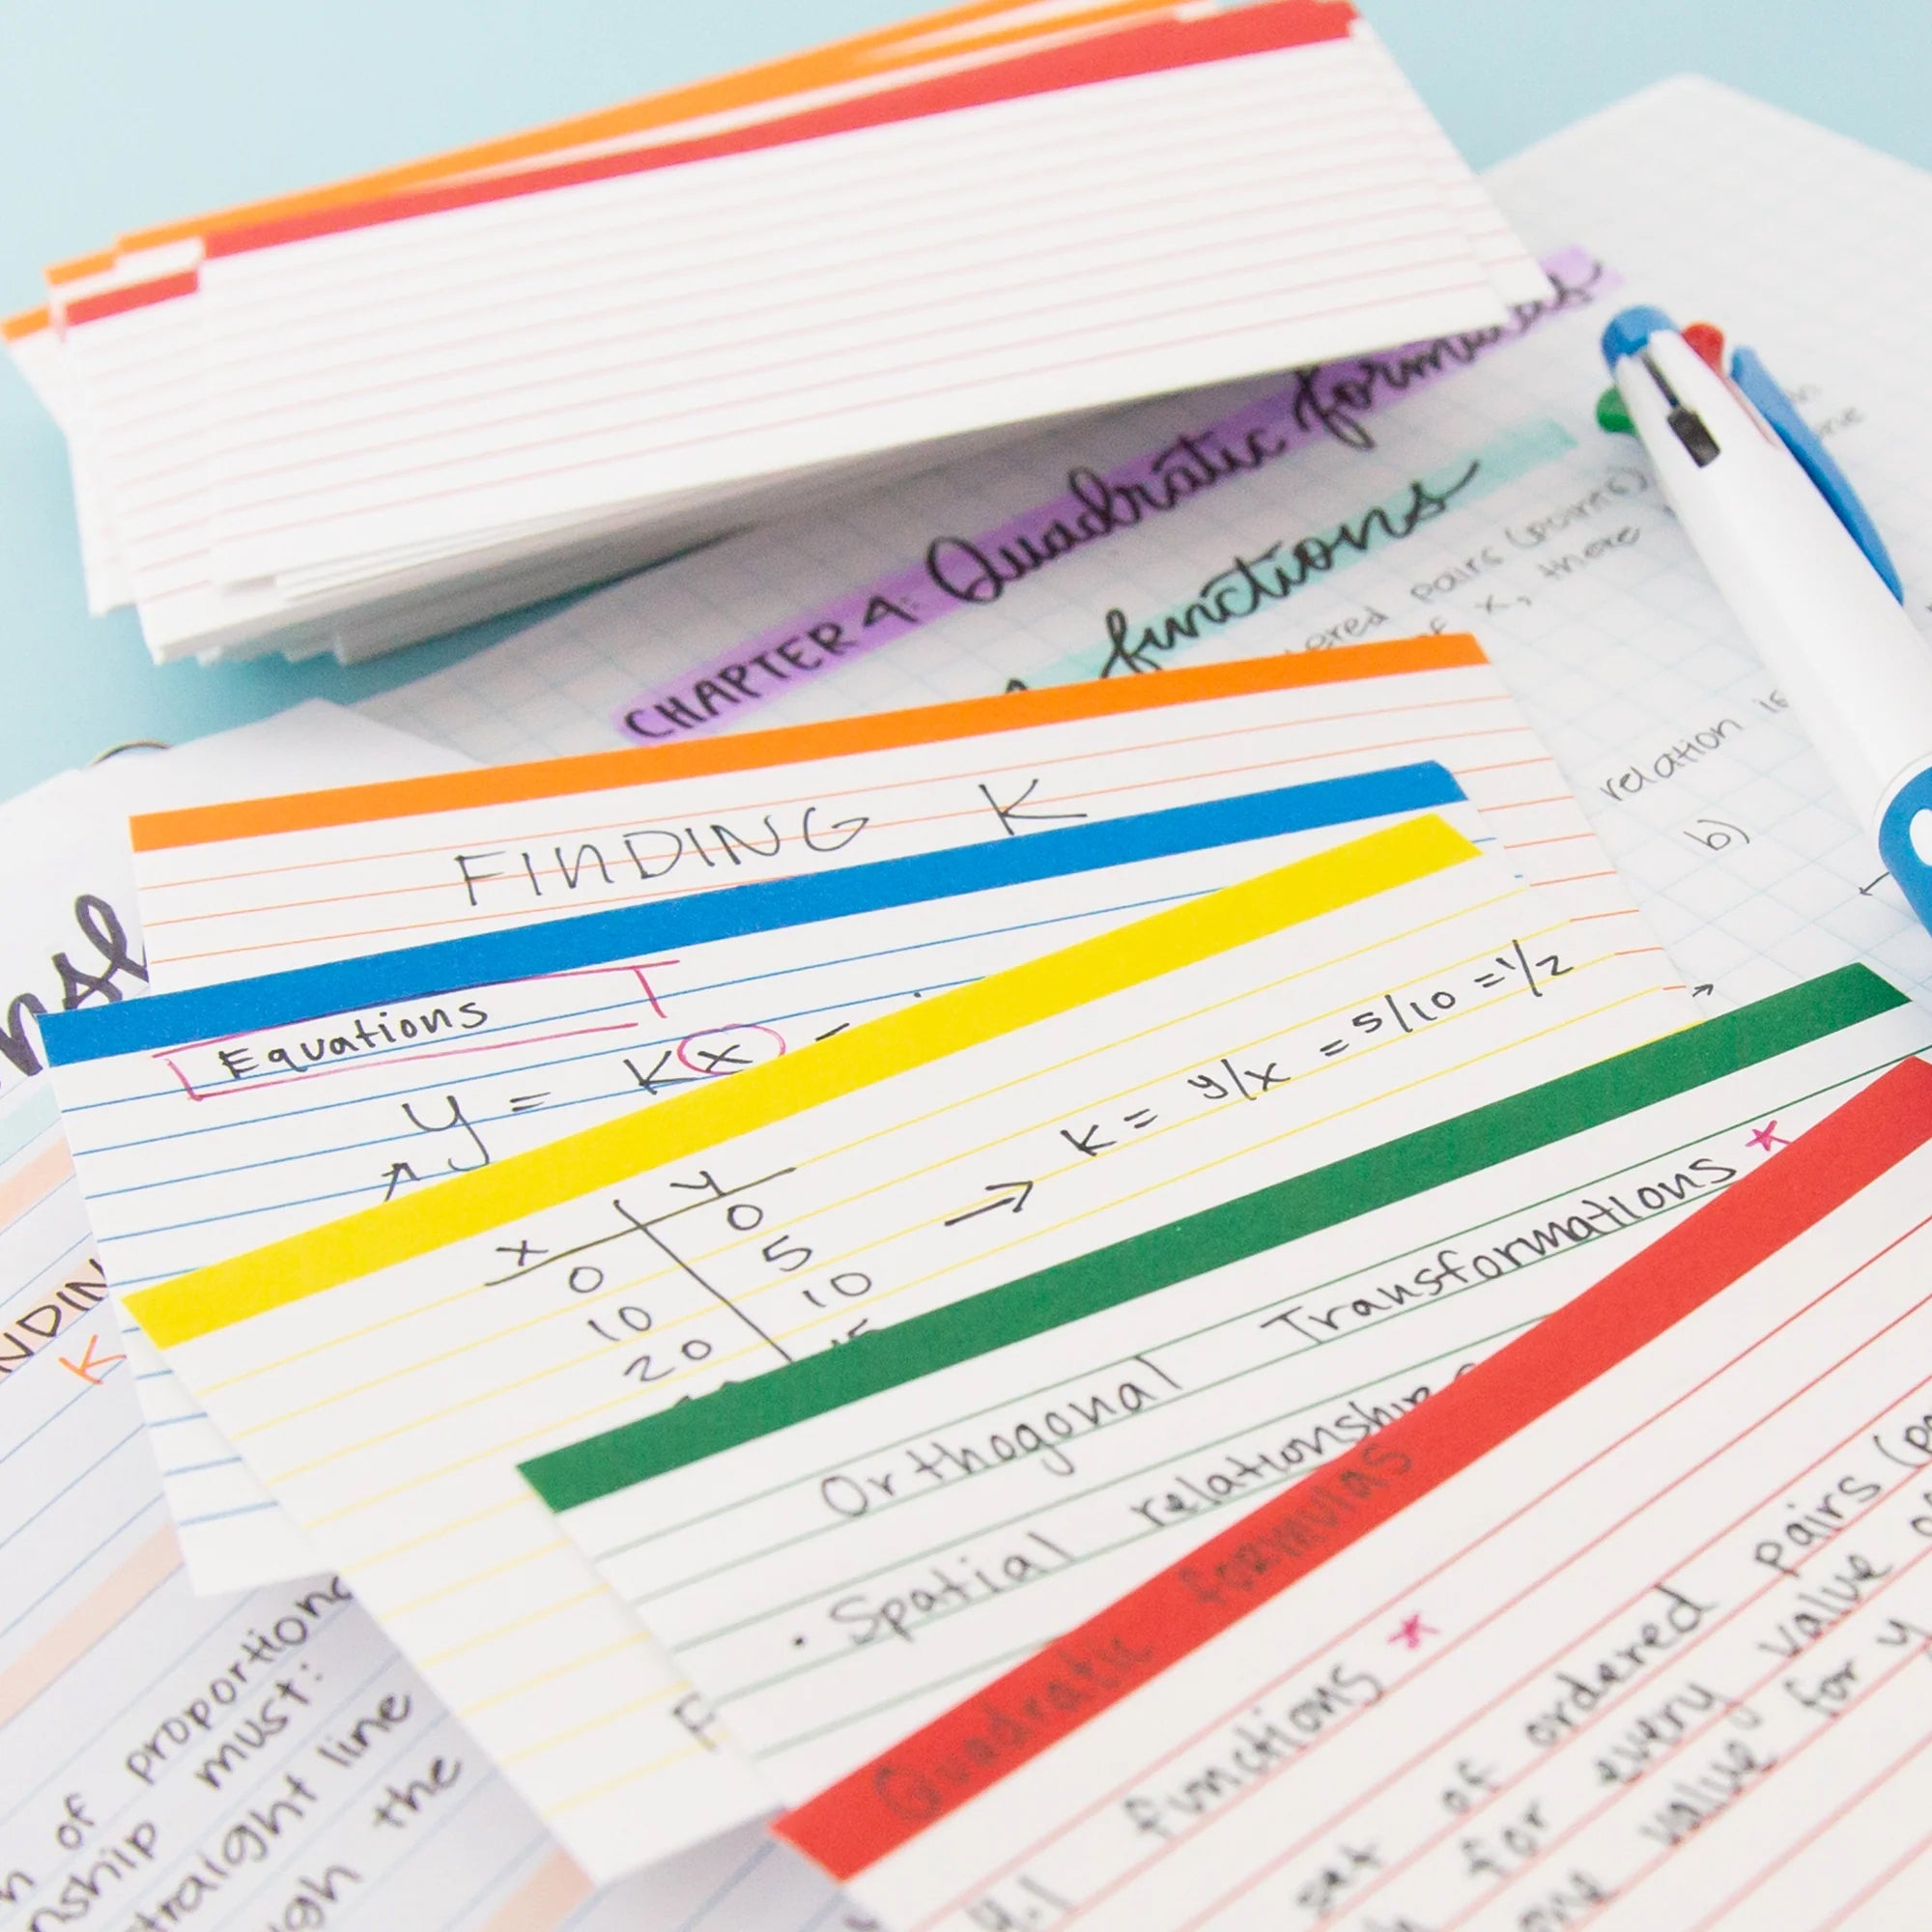 CHAPTER 4: Quadratic formulas
functions
pairs (points)
of x, there
relation is
b)
FINDING K
Equations
y = Kx
x y
0 0
10 5
20 10
15
K = y/x = 5/10 = 1/2
Orthogonal Transformations
• Spatial relationships
Quadratic formulas
4.1 functions
set of ordered pairs
for every value of
one value for y
K
of proportional
must:
straight line
the